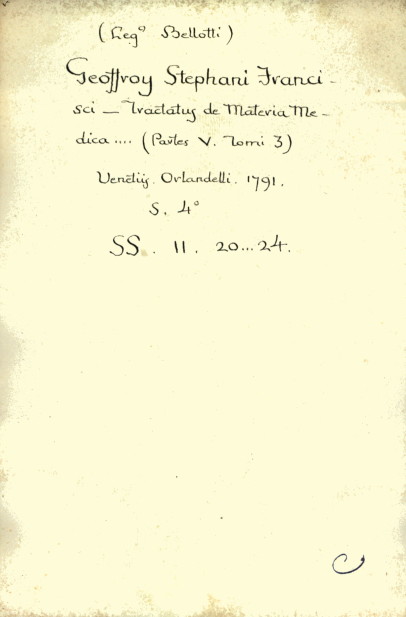 (Leg° Bellotti)
Geoffroy Stephani Franci-
sci — Tractatus de Materia Me-
dica.... (Partes V. Tomi 3)
Venetiis. Orlandelli. 1791.
S. 4°
SS. 11. 20...24.
C